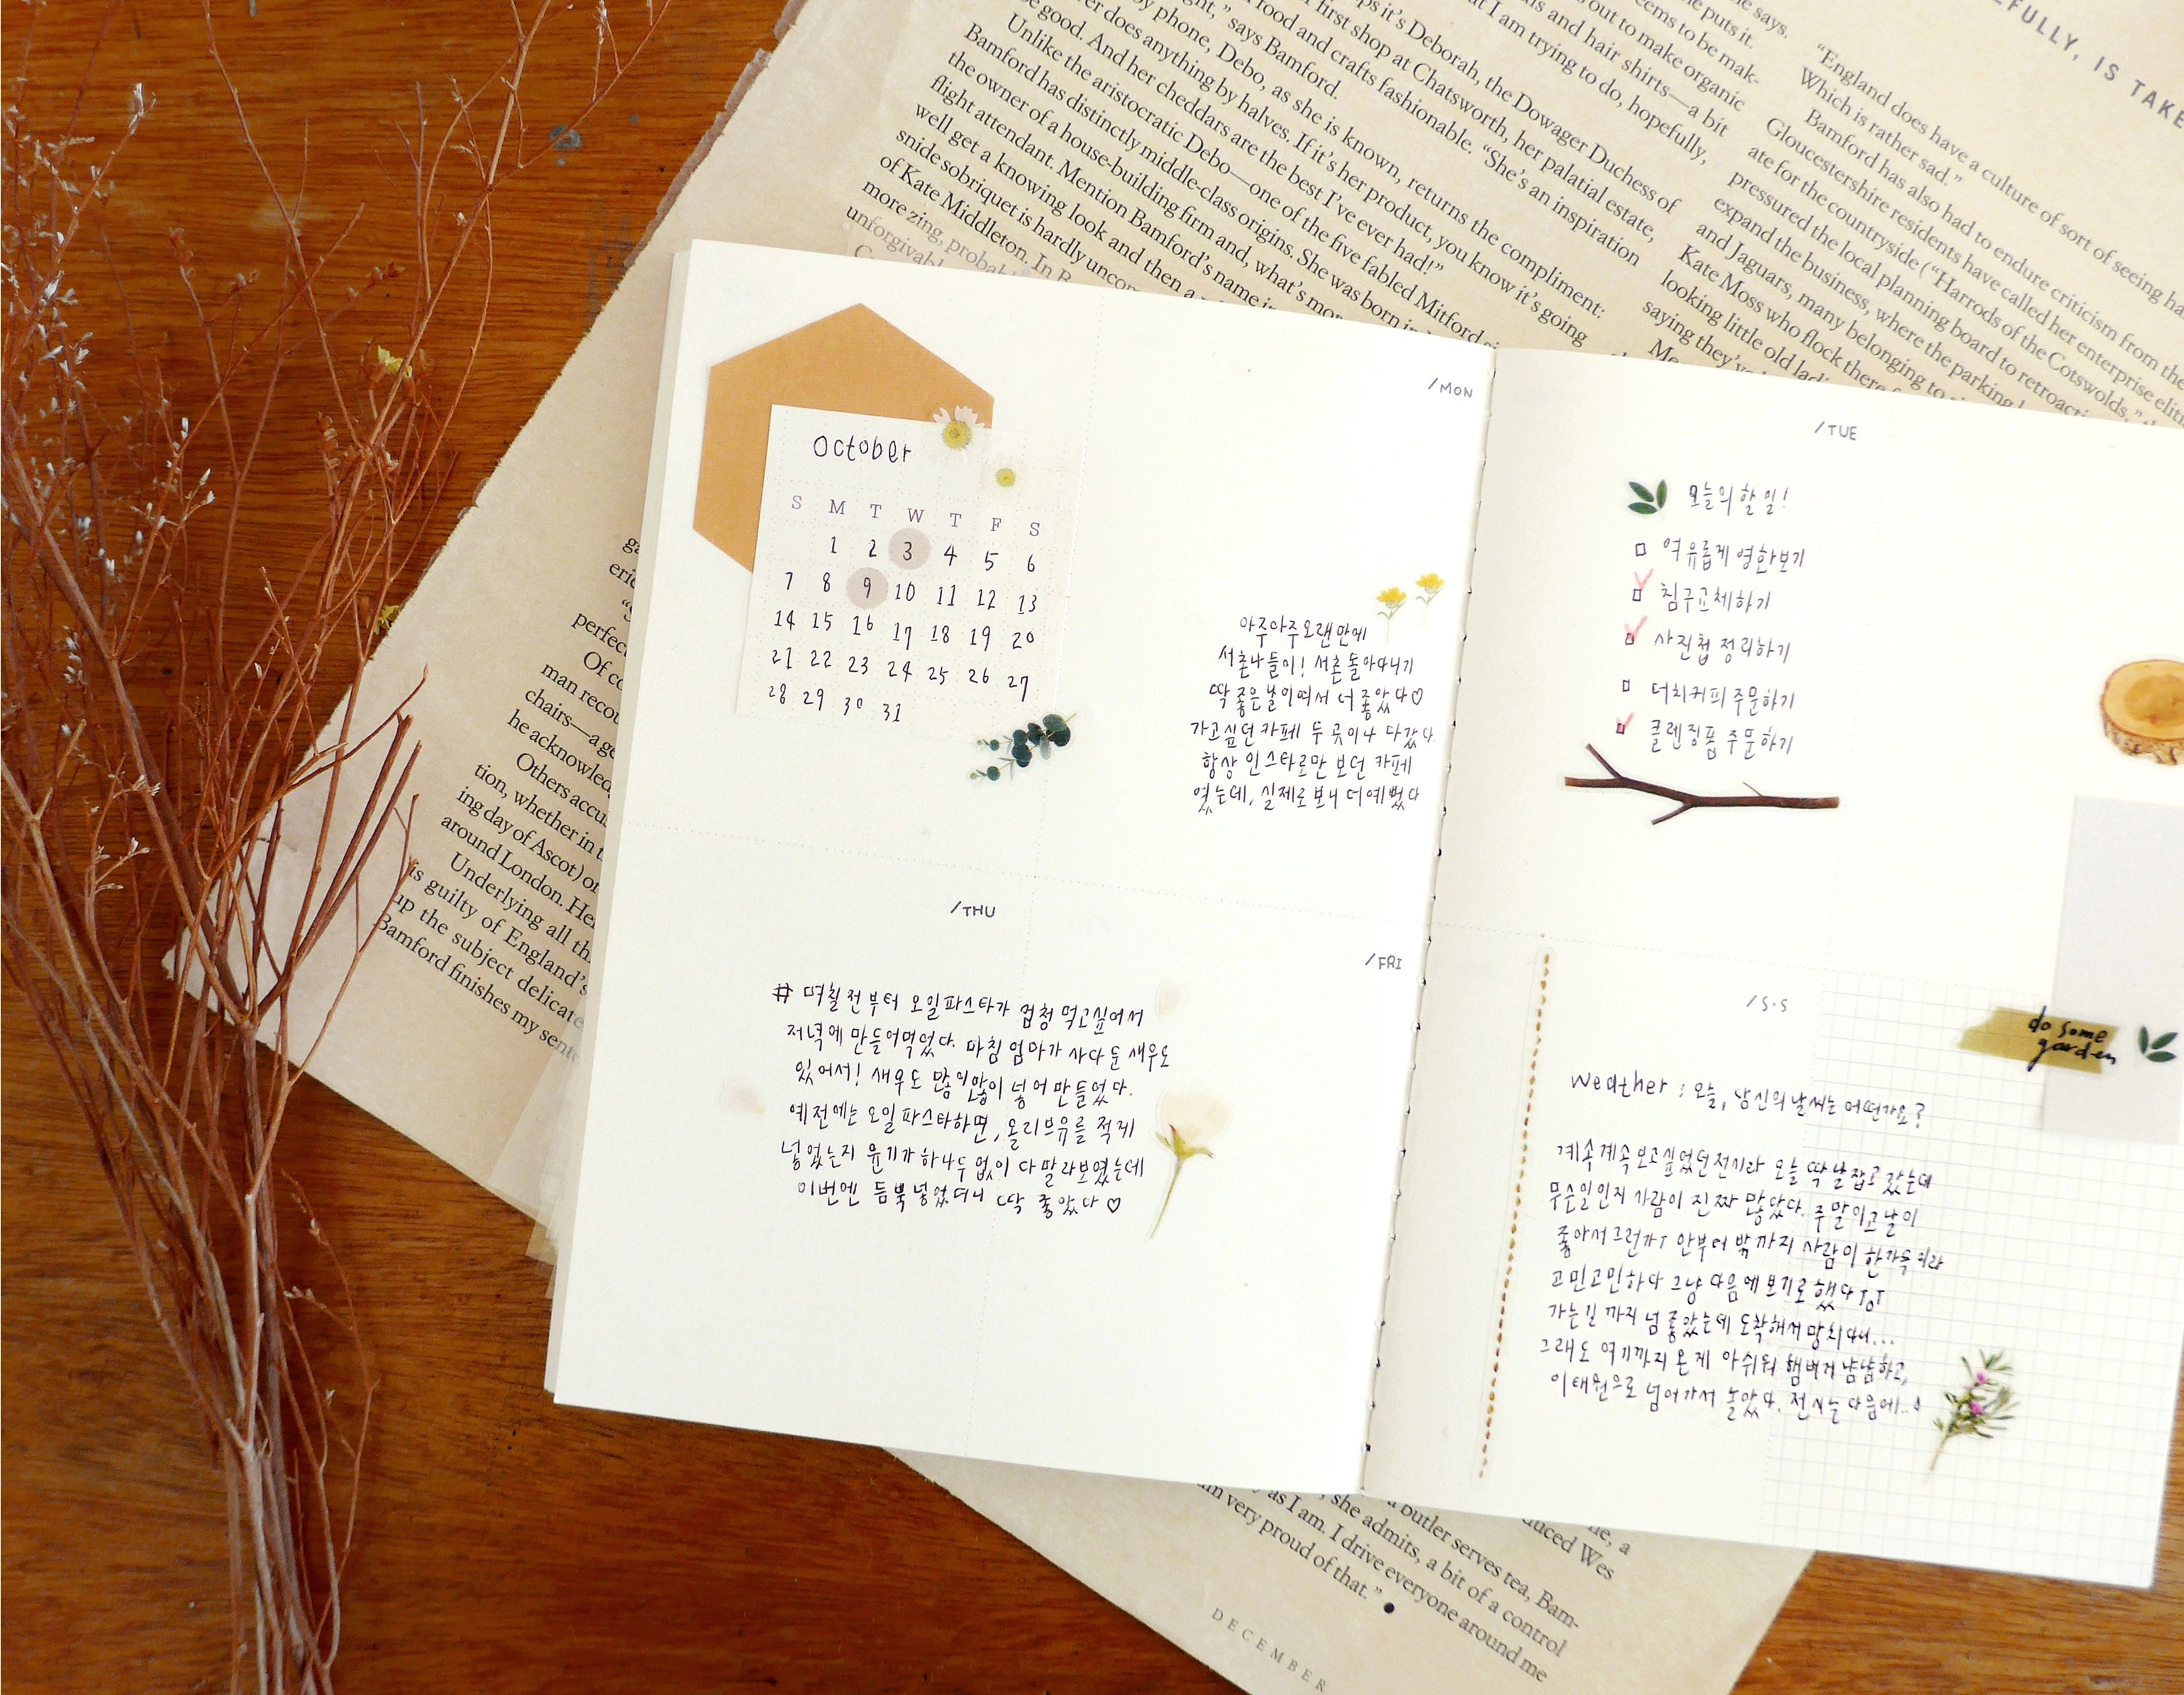 EFULLY, IS TAKE
ps it's Deborah, the Dowager Duchess of
first shop at Chatsworth, her palatial estate,
food and crafts fashionable. “She's an inspiration
ght,” says Bamford.
by phone, Debo, as she is known, returns the compliment:
ver does anything by halves. If it's her product, you know it's going
be good. And her cheddars are the best I've ever had!”
Unlike the aristocratic Debo—one of the five fabled Mitford
Bamford has distinctly middle-class origins. She was born in
the owner of a house-building firm and, what's mor
flight attendant. Mention Bamford's name in
well get a knowing look and then a
snide sobriquet is hardly uncom
of Kate Middleton. In B
more zing, probab
unforgivabl
he says.
he puts it.
eems to be mak-
out to make organic
and hair shirts—a bit
t I am trying to do, hopefully,
“England does have a culture of sort of seeing ha
Which is rather sad.”
Bamford has also had to endure criticism from the
Gloucestershire residents have called her enterprise eliti
ate for the countryside (“Harrods of the Cotswolds,”
pressured the local planning board to retroacti
expand the business, where the parking l
and Jaguars, many belonging to
Kate Moss who flock there f
looking little old ladi
saying they'v
Me
perfec
Of co
man recou
chairs—a ge
he acknowled
Others accu
tion, whether in t
ing day of Ascot) or
around London. He
Underlying all th
is guilty of England's
up the subject delicate
Bamford finishes my sente
October
S M T W T F S
1 2 3 4 5 6
7 8 9 10 11 12 13
14 15 16 17 18 19 20
21 22 23 24 25 26 27
28 29 30 31
/MON
아주아주 오랜만에
서촌나들이! 서촌 돌아다니기
딱 좋은 날이여서 더 좋았다♡
가고싶던 카페 두 곳이나 다갔다.
항상 인스타로만 보던 카페
였는데, 실제로 보니 더 예뻤다
/TUE
오늘의 할 일!
여유롭게 영화보기
침구교체하기
사진첩 정리하기
더치커피 주문하기
클렌징폼 주문하기
/THU
# 며칠전부터 오일파스타가 겁청 먹고싶어서
저녁에 만들어먹었다. 마침 엄마가 사다 둔 새우도
있어서! 새우도 많이많이 넣어 만들었다.
예전에는 오일파스타하면, 올리브유를 적게
넣었는지 윤기가 하나두 없이 다 말라보였는데
이번엔 듬뿍 넣었더니 딱 좋았다 ♡
/FRI
/S·S
do some
garden
Weather : 오늘, 당신의 날씨는 어떤가요?
계속계속 보고싶었던 전시라 오늘 딱 날잡고 갔는데
무슨일인지 사람이 진짜 많았다. 주말이고 날이
좋아서그런가? 안부터 밖까지 사람이 한가득이라
고민고민하다 그냥 다음에 보기로 했다 ToT
가는길 까지 넘 좋았는데 도착해서 망치다니...
그래도 여기까지 온게 아쉬워 햄버거 냠냠하고,
이태원으로 넘어가서 놀았다. 전시는 다음에..!
ne, a
duced Wes
a butler serves tea, Bam-
, she admits, a bit of a control
y as I am. I drive everyone around me
am very proud of that.”
DECEMBER